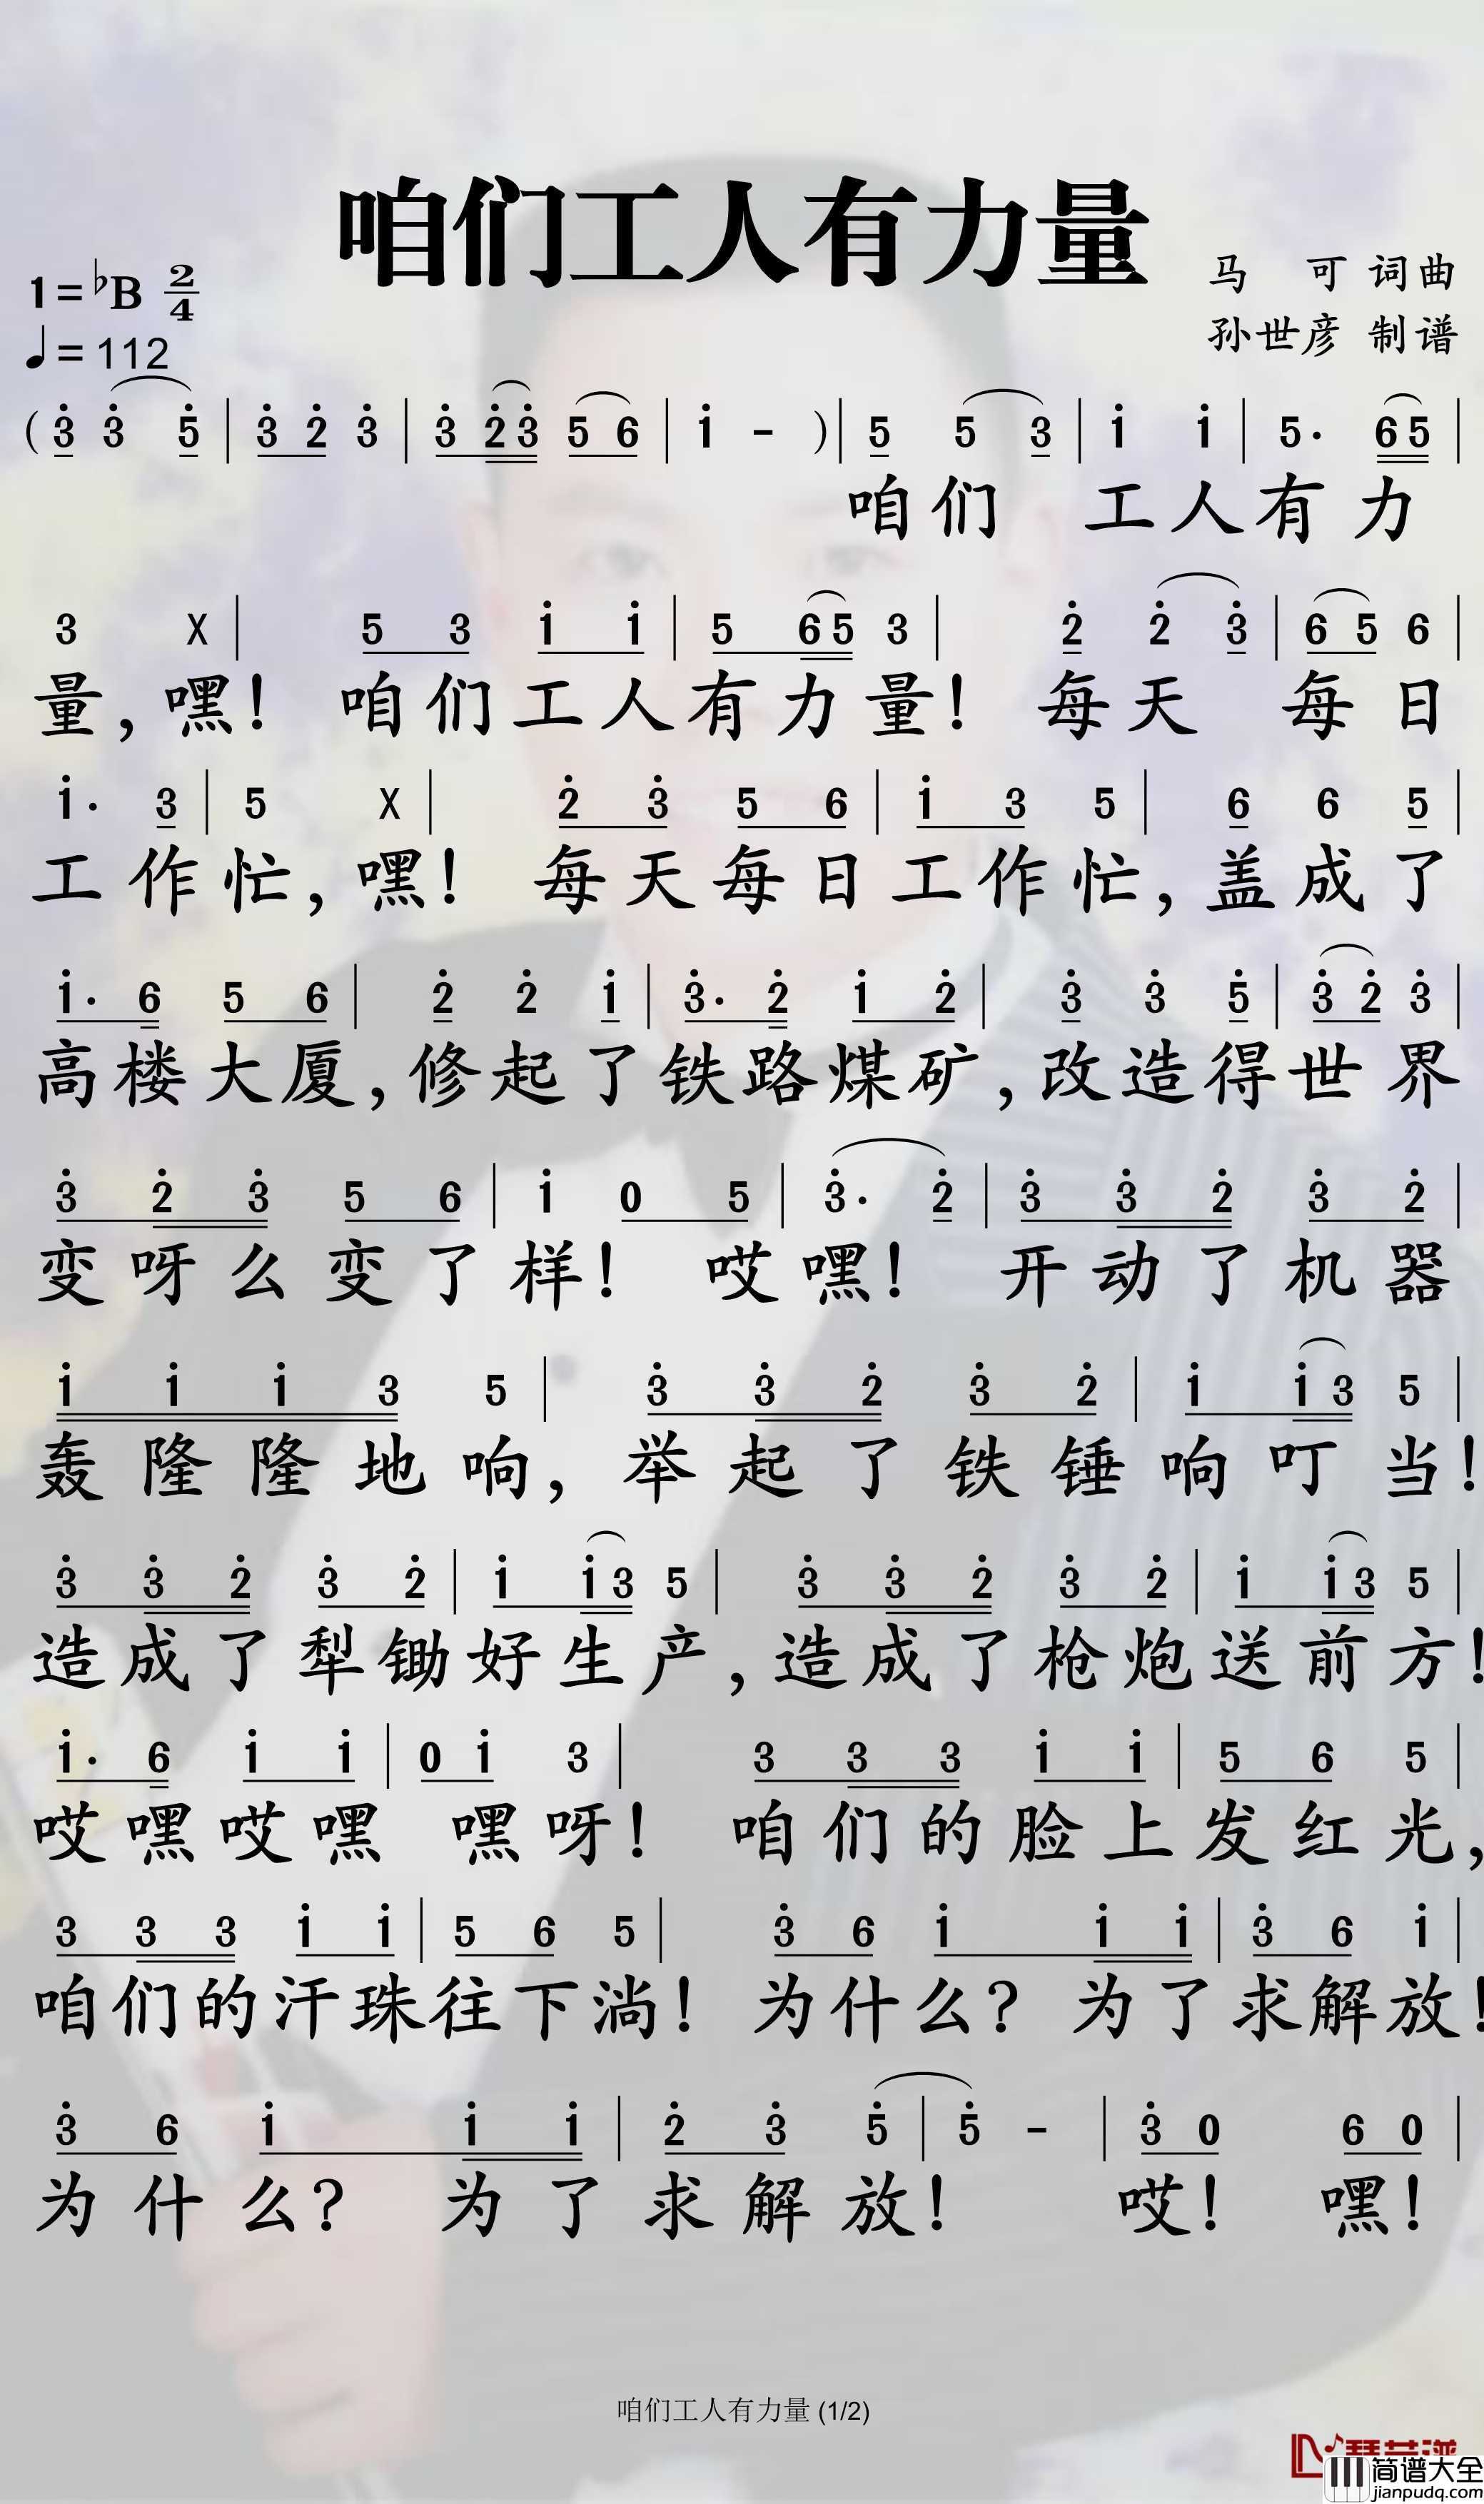 咱们工人有力量
1=♭B 2/4
马 可 词曲
♩=112
孙世彦 制谱
( 3̇ 3̇ 5̇ | 3̇ 2̇ 3̇ | 3̇ 2̇ 3̇ 5 6 | 1̇ - ) | 5 5 3 | 1̇ 1̇ | 5· 6 5 |
咱们 工人有力
3 X | 5 3 1̇ 1̇ | 5 6 5 3 | 2̇ 2̇ 3̇ | 6 5 6 |
量,嘿! 咱们工人有力量! 每天 每日
1̇· 3 | 5 X | 2̇ 3̇ 5 6 | 1̇ 3 5 | 6 6 5 |
工作忙,嘿! 每天每日工作忙,盖成了
1̇· 6 5 6 | 2̇ 2̇ 1̇ | 3̇· 2̇ 1̇ 2̇ | 3̇ 3̇ 5̇ | 3̇ 2̇ 3̇ |
高楼大厦,修起了铁路煤矿,改造得世界
3̇ 2̇ 3̇ 5 6 | 1̇ 0 5 | 3̇· 2̇ | 3̇ 3̇ 2̇ 3̇ 2̇ |
变呀么变了样! 哎嘿! 开动了机器
1̇ 1̇ 1̇ 3 5 | 3̇ 3̇ 2̇ 3̇ 2̇ | 1̇ 1̇ 3 5 |
轰隆隆地响,举起了铁锤响叮当!
3̇ 3̇ 2̇ 3̇ 2̇ | 1̇ 1̇ 3 5 | 3̇ 3̇ 2̇ 3̇ 2̇ | 1̇ 1̇ 3 5 |
造成了犁锄好生产,造成了枪炮送前方!
1̇· 6 1̇ 1̇ | 0 1̇ 3 | 3 3 3 1̇ 1̇ | 5 6 5 |
哎嘿哎嘿 嘿呀! 咱们的脸上发红光,
3 3 3 1̇ 1̇ | 5 6 5 | 3̇ 6 1̇ 1̇ 1̇ | 3̇ 6 1̇ |
咱们的汗珠往下淌! 为什么? 为了求解放!
3̇ 6 1̇ 1̇ 1̇ | 2̇ 3̇ 5̇ | 5̇ - | 3̇ 0 6 0 |
为什么? 为了求解放! 哎! 嘿!
咱们工人有力量 (1/2)
简谱大全
jianpudq.com